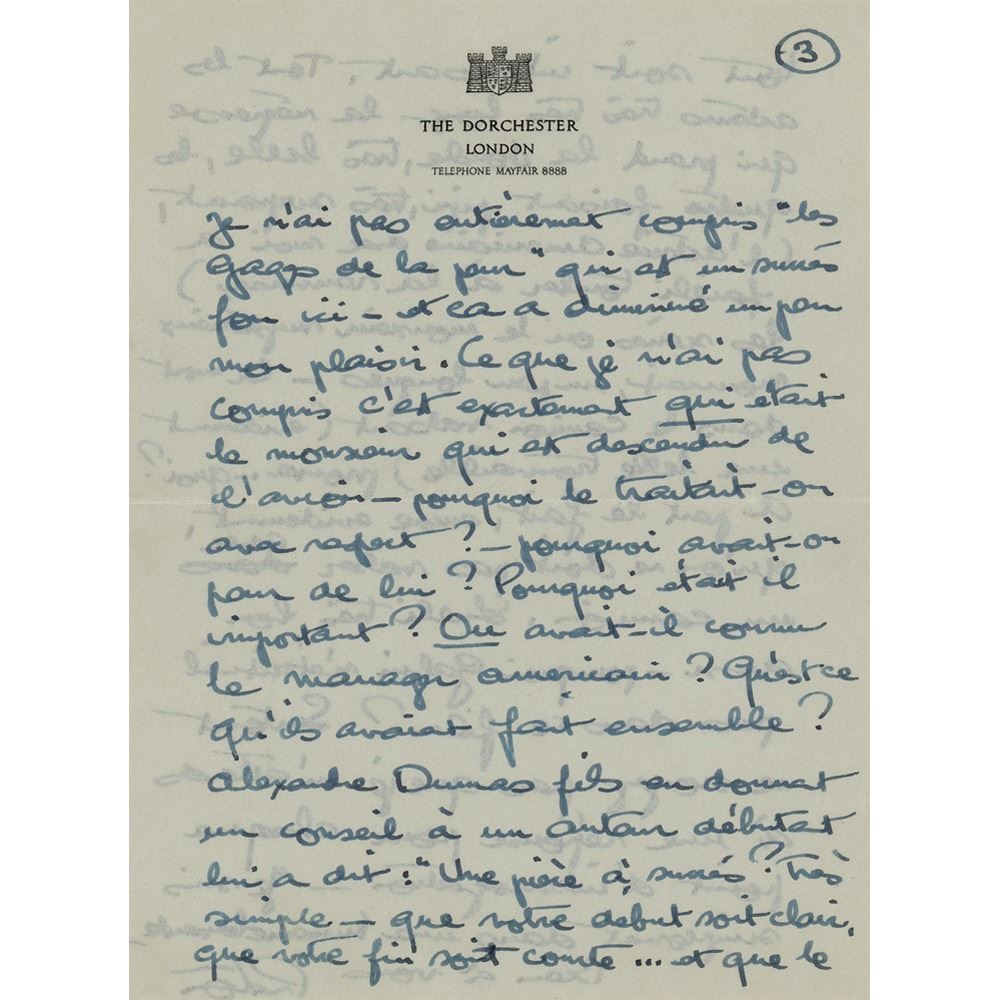 3
THE DORCHESTER
LONDON
TELEPHONE MAYFAIR 8888
Je n'ai pas entièrement compris "les
gages de la peur" qui est un succès
fou ici – et ça a diminué un peu
mon plaisir. Ce que je n'ai pas
compris c'est exactement qui était
le monsieur qui est descendu de
l'avion – pourquoi le traitait-on
avec respect ? – pourquoi avait-on
peur de lui ? Pourquoi était il
important ? Ou avait-il connu
le manager americain ? Qu'est ce
qu'ils avaient fait ensemble ?
Alexandre Dumas fils en donnant
un conseil à un auteur débutant
lui a dit : "Une pièce à succès ? Très
simple – que votre début soit clair,
que votre fin soit courte ... et que le